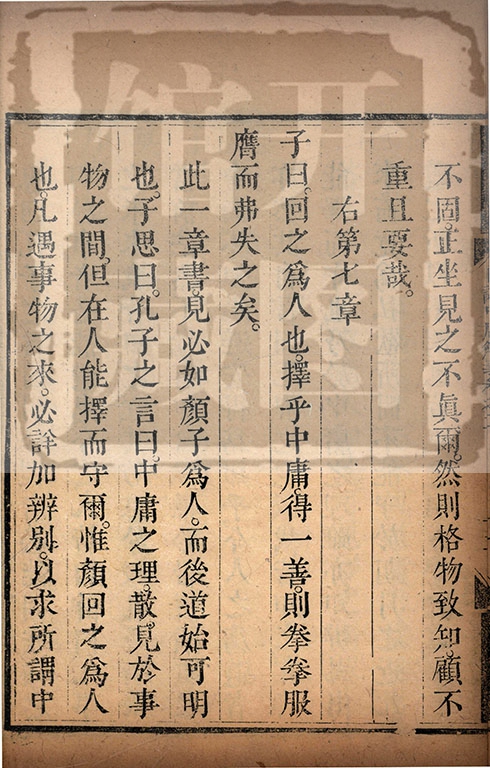 不固。正坐見之不眞爾。然則格物致知。顧不
重且要哉。
右第七章
子曰。回之爲人也。擇乎中庸。得一善。則拳拳服
膺而弗失之矣。
此一章書。見必如顏子爲人。而後道始可明
也。子思曰。孔子之言曰。中庸之理。散見於事
物之間。但在人能擇而守爾。惟顏回之爲人
也。凡遇事物之來。必詳加辨別。以求所謂中